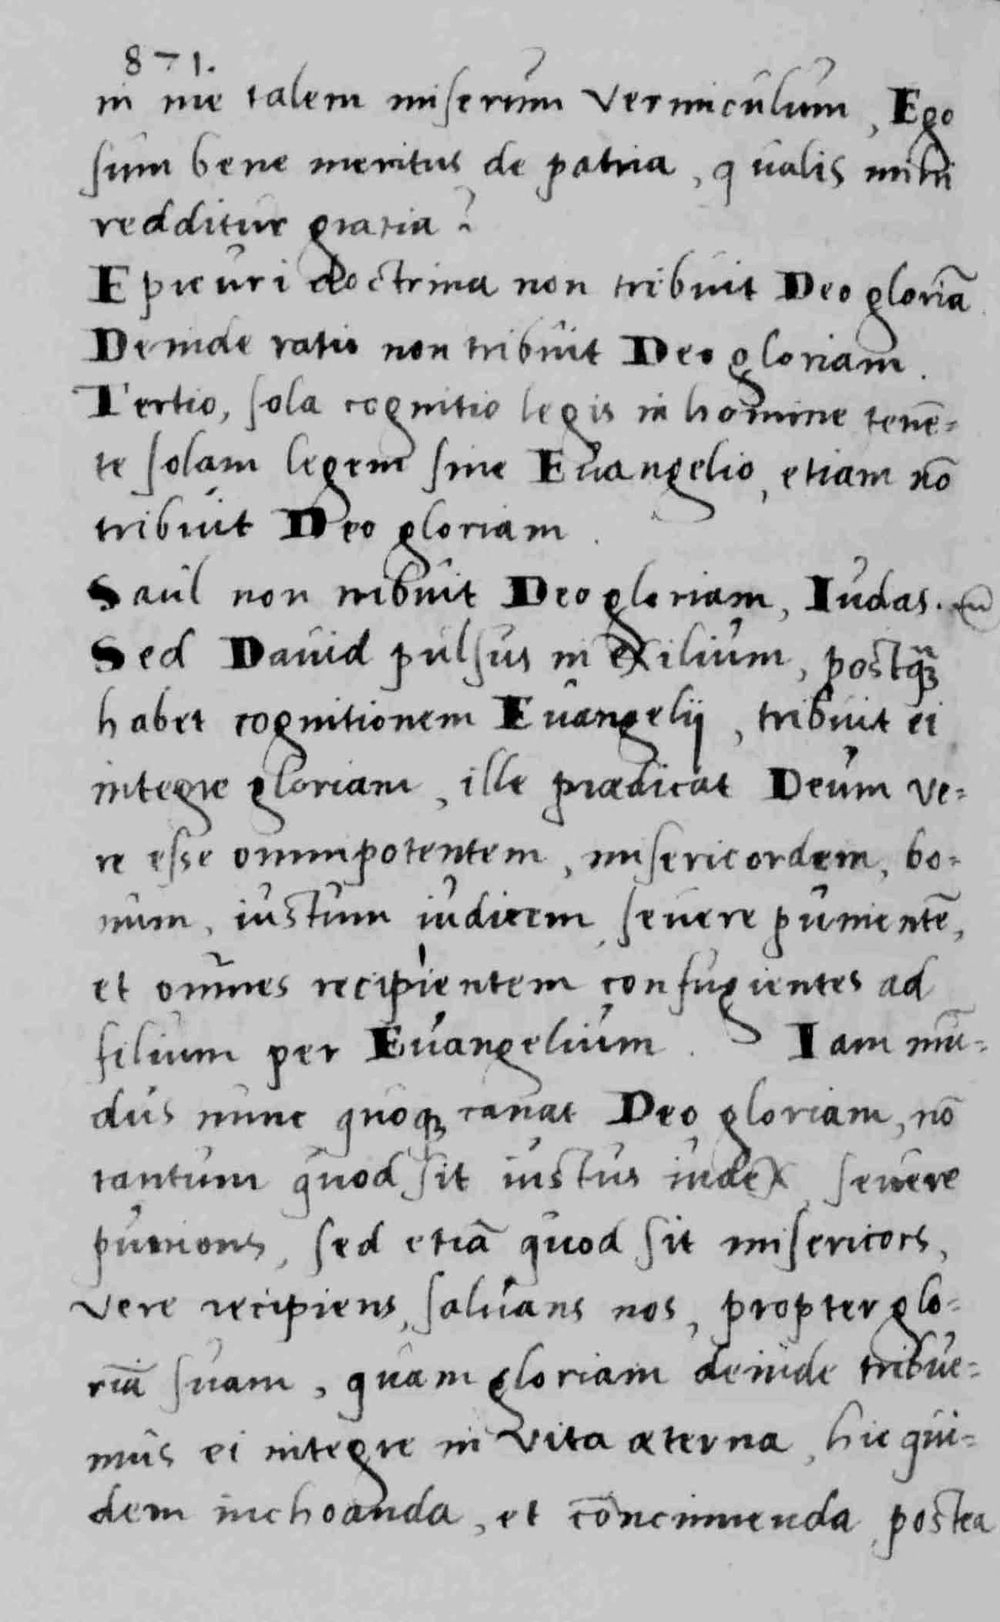 871.
in me talem miserum vermiculum, Ego
sum bene meritus de patria, qualis mihi
redditur gratia?
Epicuri doctrina non tribuit Deo gloriā.
Deinde ratio non tribuit Deo gloriam.
Tertio, sola cognitio legis in homine tenē=
te solam legem sine Euangelio, etiam nō
tribuit Deo gloriam.
Saul non tribuit Deo gloriam, Iudas.
Sed Dauid pulsus in exilium, postq̃
habet cognitionem Euangelij, tribuit ei
integre gloriam, ille prædicat Deum ve=
re esse omnipotentem, misericordem, bo=
num, iustum iudicem, seuere punientē,
et omnes recipientem confugientes ad
filium per Euangelium. Iam mū=
dus nunc quoq; canat Deo gloriam, nō
tantum quod sit iustus iudex, seuere
puniens, sed etiā quod sit misericors,
vere recipiens, saluans nos, propter glo=
riā suam, quam gloriam deinde tribue=
mus ei integre in vita æterna, hic qui=
dem inchoanda, et postea